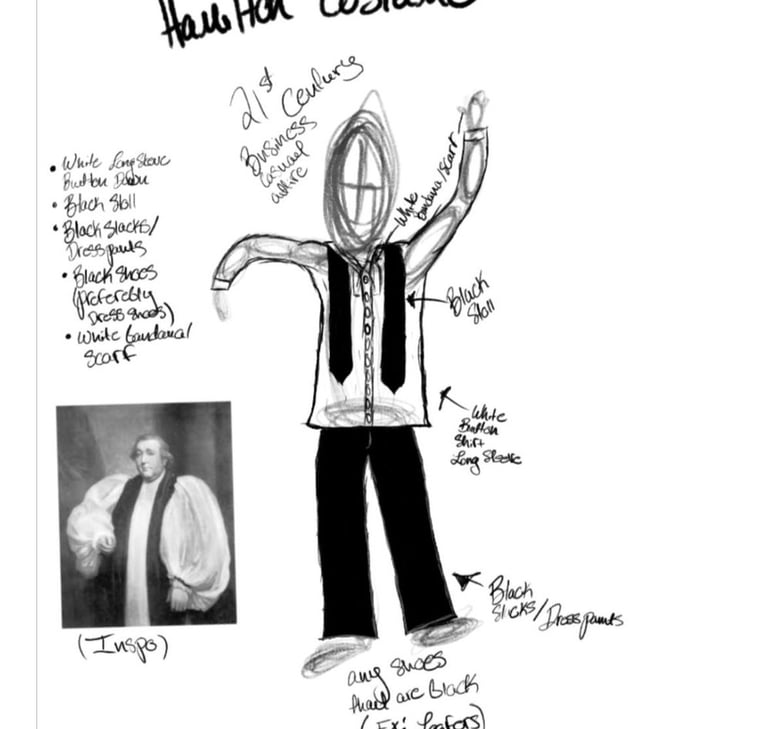 Hamilton Costume
21st Century
Business
Casual
attire
• White Long Sleeve
Button Down
• Black Stoll
• Black Slacks/
Dress pants
• Black Shoes
(Preferebly
Dress Shoes)
• White bandana/
Scarf
White
bandana/scarf
Black
Stoll
White
Button
Shirt
Long Sleeve
Black
Slicks/Dress pants
(Inspo)
any shoes
that are Black
(Ex: Loafers)